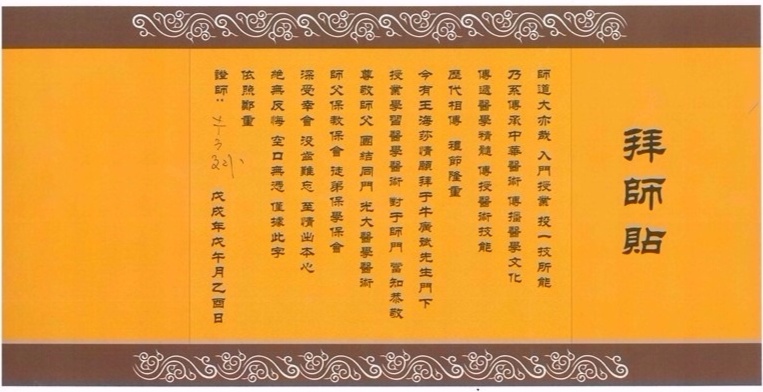 拜師貼
師道大亦哉 入門授業 投一技所能
乃系傳承中華醫術 傳播醫學文化
傳道醫學精髓 傳授醫術技能
歷代相傳 禮節隆重
今有王海莎情願拜于牛廣斌先生門下
授業學習醫學醫術 對于師門 當知恭敬
尊敬師父 團結同門 光大醫學醫術
師父保教保會 徒弟保學保會
深受幸會 没齒難忘 至情出本心
絶無反悔 空口無憑 僅據此字
依照鄭重
證師：
戊戌年戊午月乙酉日